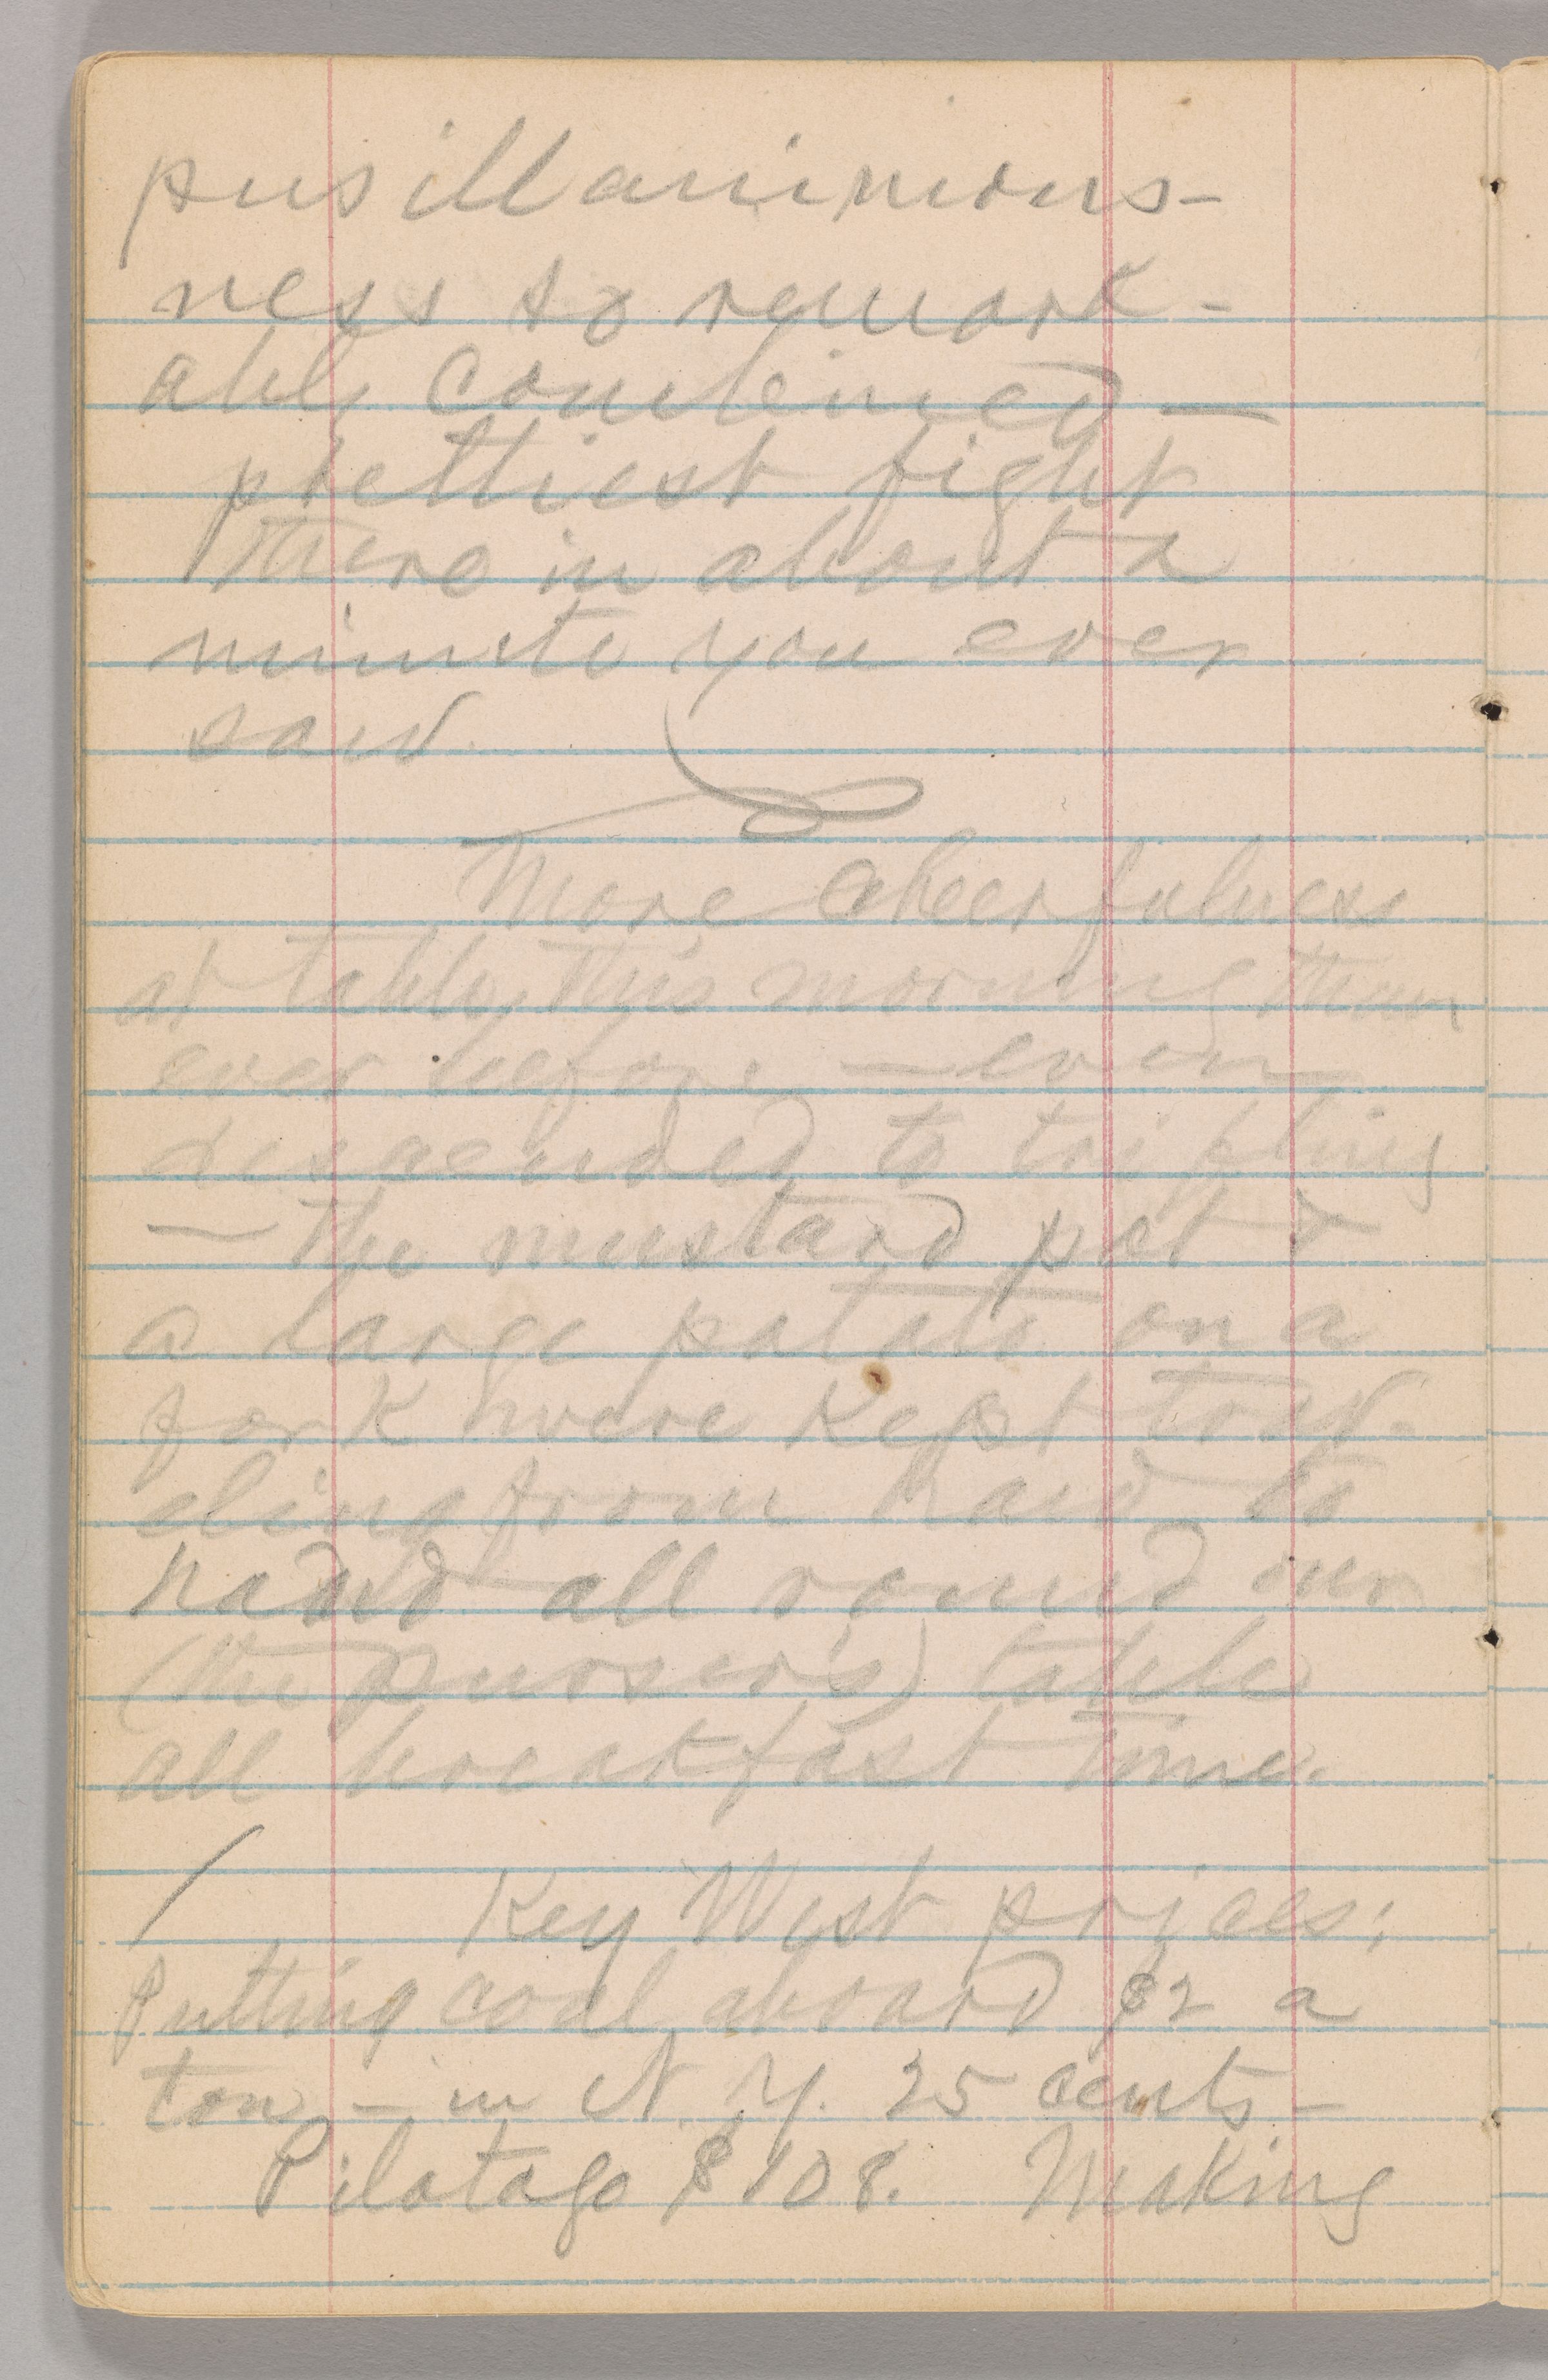 pusillanimous-
ness so remark-
ably combined —
prettiest fight
there in about a
minute you ever
saw.
More cheerfulness
at table this morning than
ever before — even
descended to trifling
— the mustard pot &
a large potato on a
fork were kept trav-
eling from hand to
hand all round our
(the purser's) table
all breakfast time.
Key West prices:
Putting coal aboard $2 a
ton — in N. Y. 25 cents —
Pilotage $108. Making